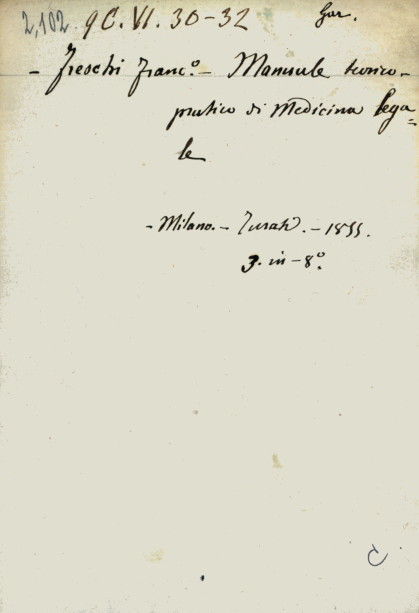 2,102 9C.VI.30-32 Gar.
- Freschi Franc.º - Manuale teorico-
pratico di Medicina lega=
le
- Milano. - Turati. - 1855.
3. in-8º.
C